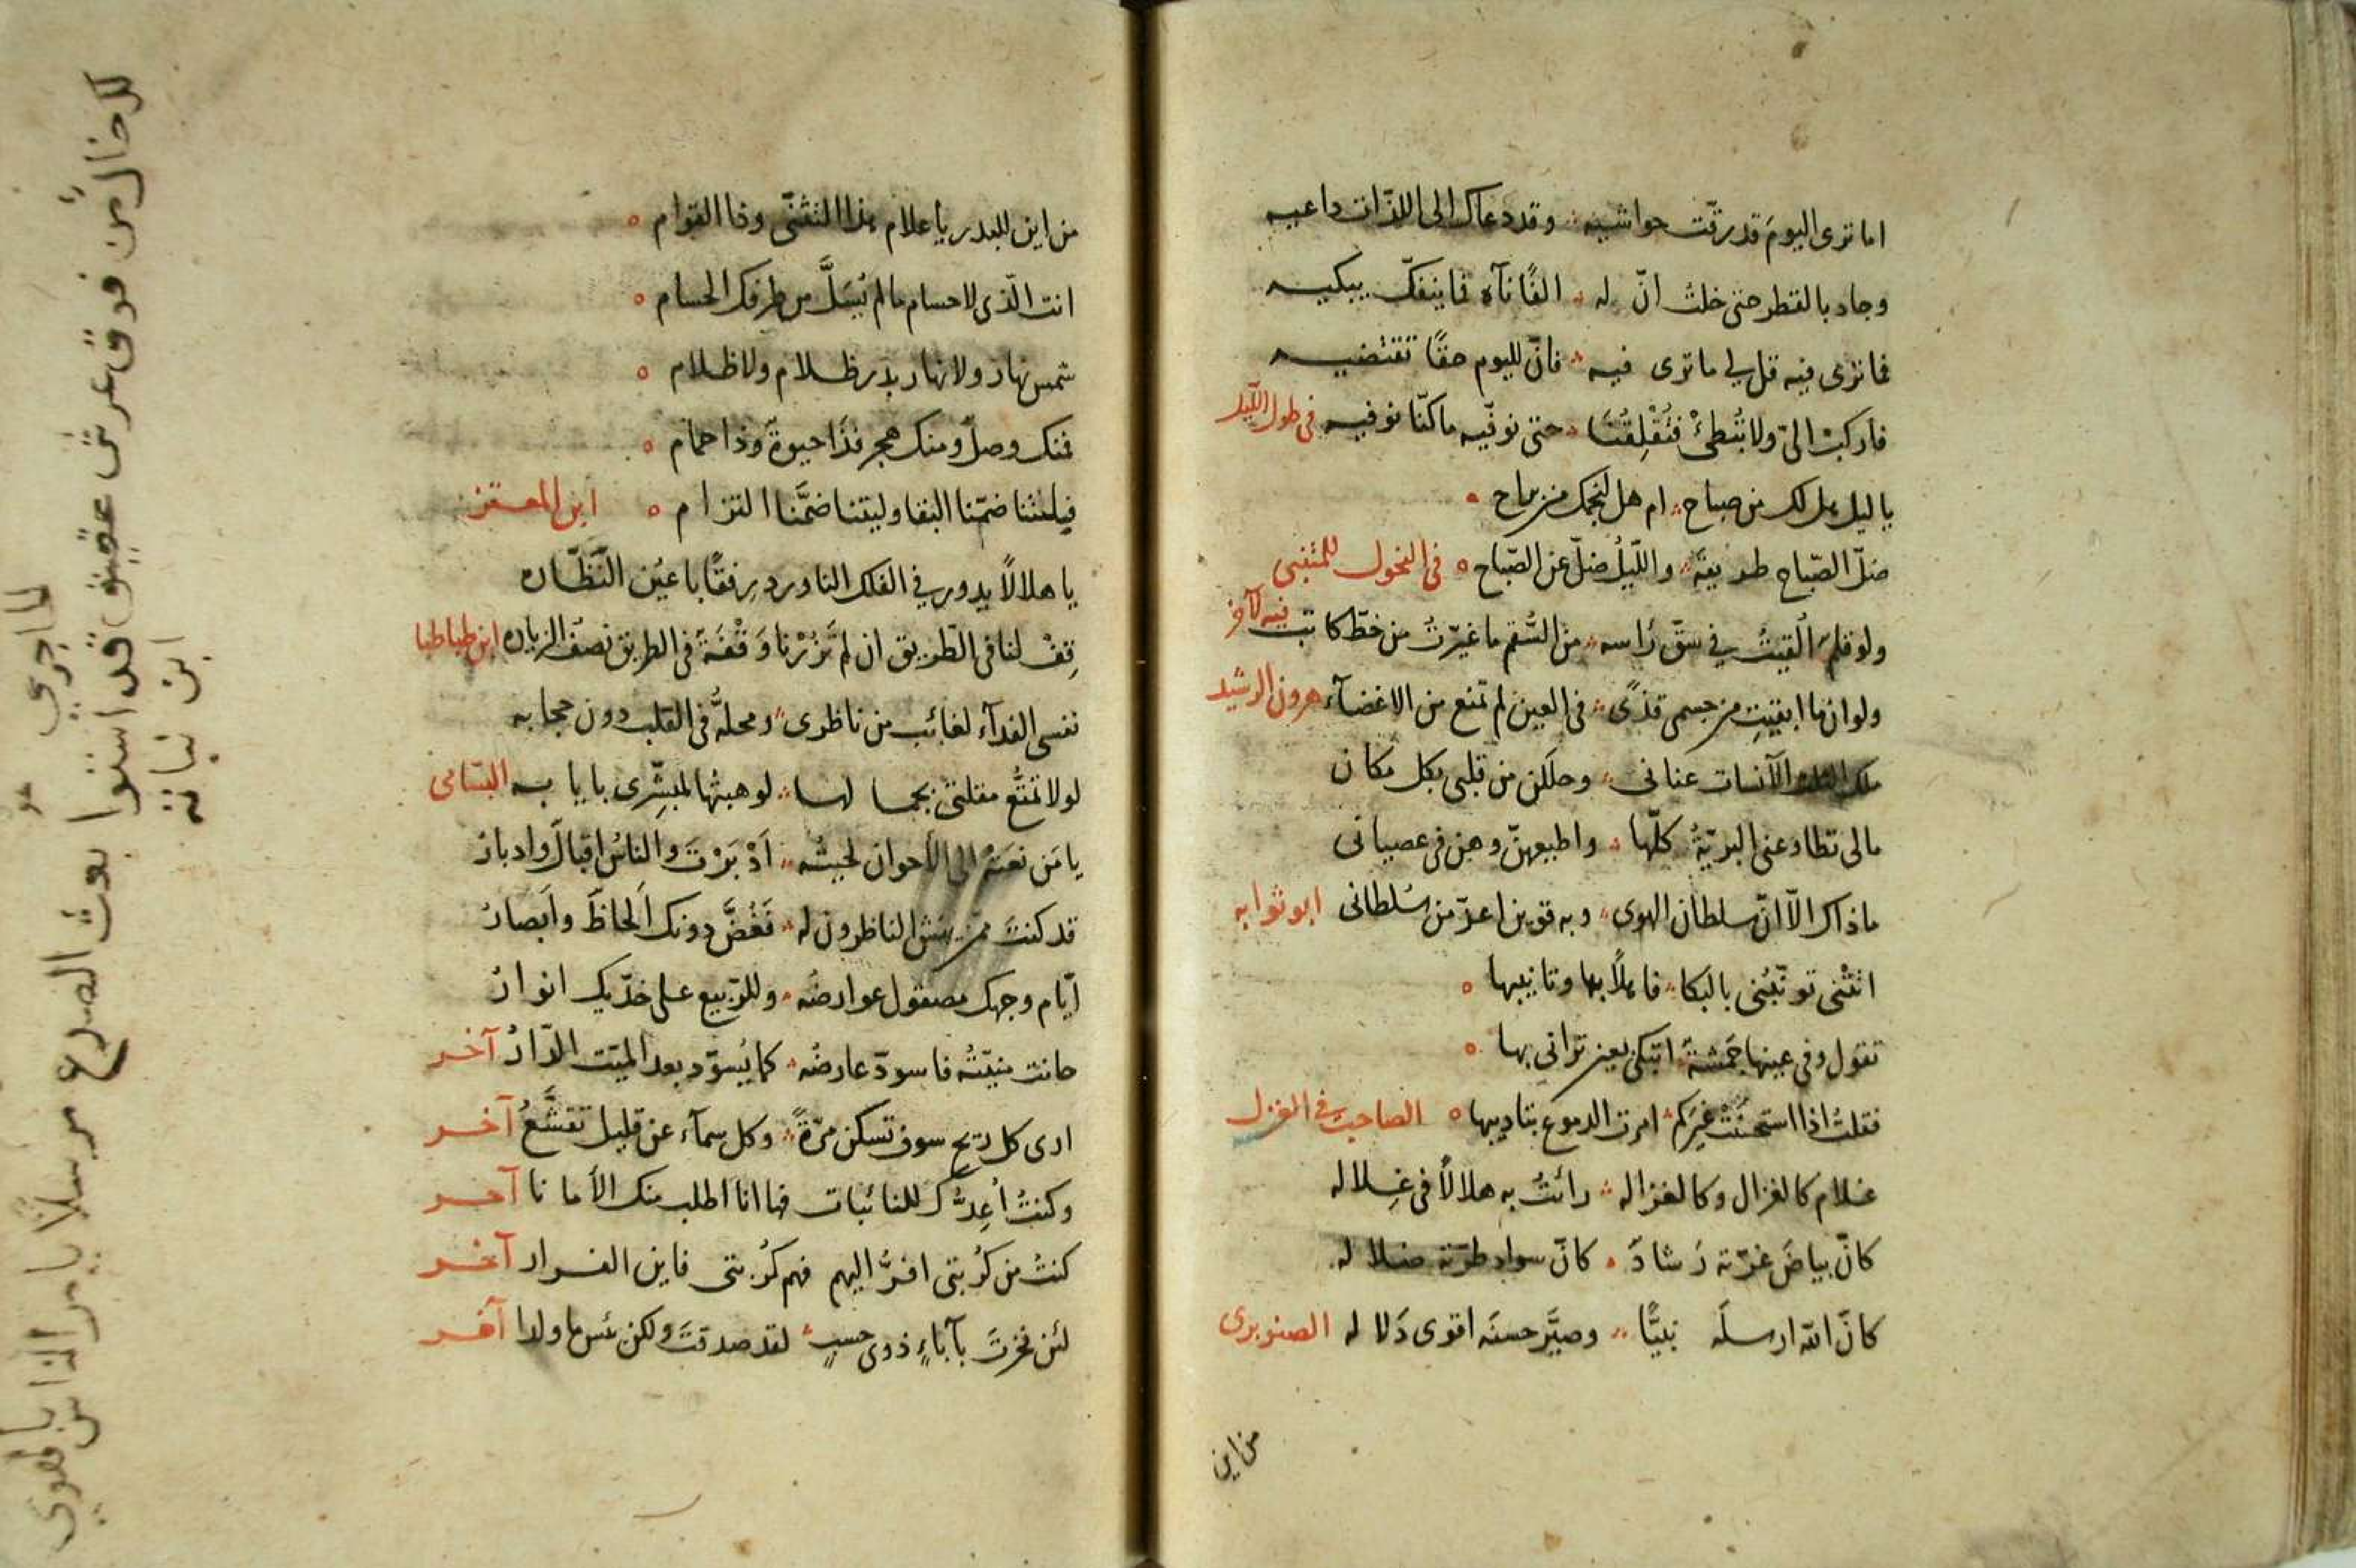 اما ترى اليوم قد رقّت حواشيه وقد دعاك الى اللذّات داعيه
وجاد بالقطر حتى خلت انّ له الفًا نآه فما ينفكّ يبكيه
فما ترى فيه قل لي ما ترى فيه فانّ لليوم حقًا تقتضيه
فاركب الىّ ولا تُبطئْ فتُقْلِقُنا حتى نوفّيه ماكنّا نوفيه في طول الليل
يا ليل هل لك من صباح ام هل لنجمك من براح
ضلّ الصّباح طريقه والليلُ ضلّ عن الصّباح في النحول للمتنبي
ولو قلم اُلقيتُ في شقّ رأسه من السُّقم ما غيّرتُ من خطّ كاتب فيه لآخر
ولو ان ما ابقيتِ من جسمى قذًى في العين لم تمنع من الاغضآء هرون الرشيد
ملك الثلث الآنسات عنانى وحللن من قلبى بكل مكان
مالى تطاوعنى البريّةُ كلّها واطيعهنّ وهن فى عصيانى
ما ذاك الّا انّ سلطان الهوى وبه قوين اعزّ من سُلطانى ابو ثوابه
اتتْنى تونّبُنى بالبكا فاهلًا بها وتانيبها
تقول وفى عينها حَشمةٌ اتبكى بعين ترانى بها
فقلتُ اذا استحسَنَتْ غيرَكم امرت الدموع بتاديبها الصاحب في الغزل
غلام كالغزال وكالغزاله رائتُ به هلالًا فى غِلاله
كانّ بياضَ غرّته رَشادٌ كانّ سواد طرّته ضلاله
كانّ الله ارسلَه نبيًّا وصيَّر حسنَه اقوى دَلاله الصنوبرى
من اين
من اين للبدر يا غلام هذا التثنّى وذا القوام
انت الّذى لا حسام ما لم يُسَلَّ من طرفك الحسام
شمس نهار ولا نهار بدر ظلام ولا ظلام
فمنك وصلٌ ومنك هجر فذا حيوةٌ وذا حمام
فيلتنا ضمّنا البقا وليتنا ضمَّنا التزام ابن المعتز
يا هلالًا يدور في الفلك الناورد رفقًا باعيُن النّظّاره
قِفْ لنا فى الطّريق ان لم تَزُرْنا وَقْفَةٌ فى الطريق نصفُ الزياره ابن طباطبا
نفسى الفدآء لغائب من ناظرى ومحلّه فى القلب دون حجابه
لولا تمتُّع مقلتى بجمالها لوهبتُها لمبشّرى بايابه البسامى
يا من نعته الى الأخوان لحيتُه اَدْبَرْتَ والناسُ اقبالٌ وادبارُ
قد كنتَ ممن يهشّ الناظرون له تَغُضُّ دونك اَلحاظٌ وابَصارُ
ايّام وجهك مصقول عوارضُه وللرّبيع على خدّيك انوارُ
حانت منيّتُه فاسودّ عارضُه كما يُسوّد بعد الميّت الدّارُ آخر
ارى كل ريح سوف تسكن مرّةً وكل سمآء عن قليل تقشَّعُ آخر
وكنتُ اُعِدُّك للنائبات فها انا اطلب منك الأمانا آخر
كنتُ من كُربتى افرُّ اليهم فهم كُربتى فاين الفرار آخر
لئن فخرتَ بآباءٍ ذوى حسبٍ لقد صدقتَ ولكن بئس ما ولدا آخر
لما جرى
كل خال من فوق عرش عقيق قد استوا
بعث الصدغ مرسلا يامر الناس بالهوى
ابن نباته